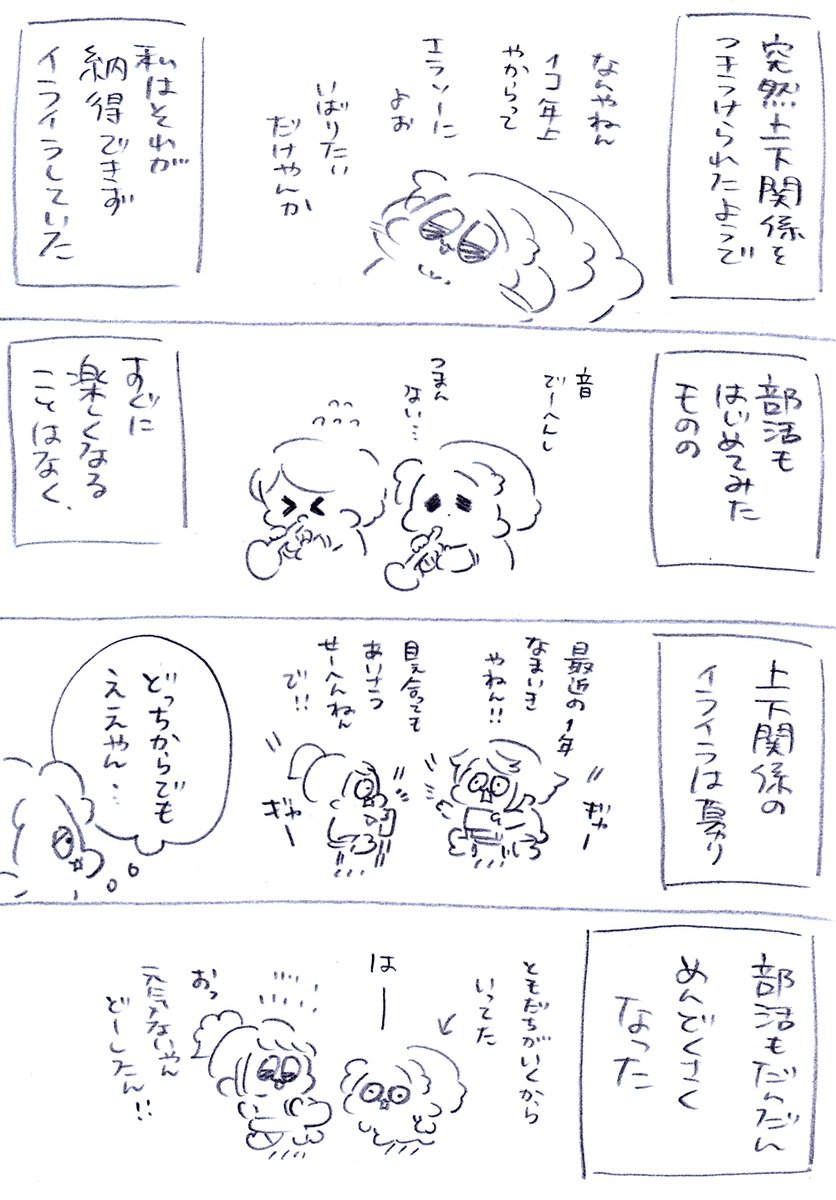 突然上下関係を
つきつけられたようで
なんやねん
1コ年上
やからって
エラソーに
よお
いばりたい
だけやんか
私はそれが
納得できず
イライラしていた
部活も
はじめてみた
ものの
音
でーへんし
つまん
ない…
すぐに
楽しくなる
ことはなく、
上下関係の
イライラは募り
最近の1年
なまいき
やねん!!
目え合っても
あいさつ
せーへんねん
で!!
ギャー
ギャー
どっちからでも
ええやん…
部活もだんだん
めんどくさく
なった
ともだちがいくから
いってた
はー
おっ
元気ないやん
どーしたん!!